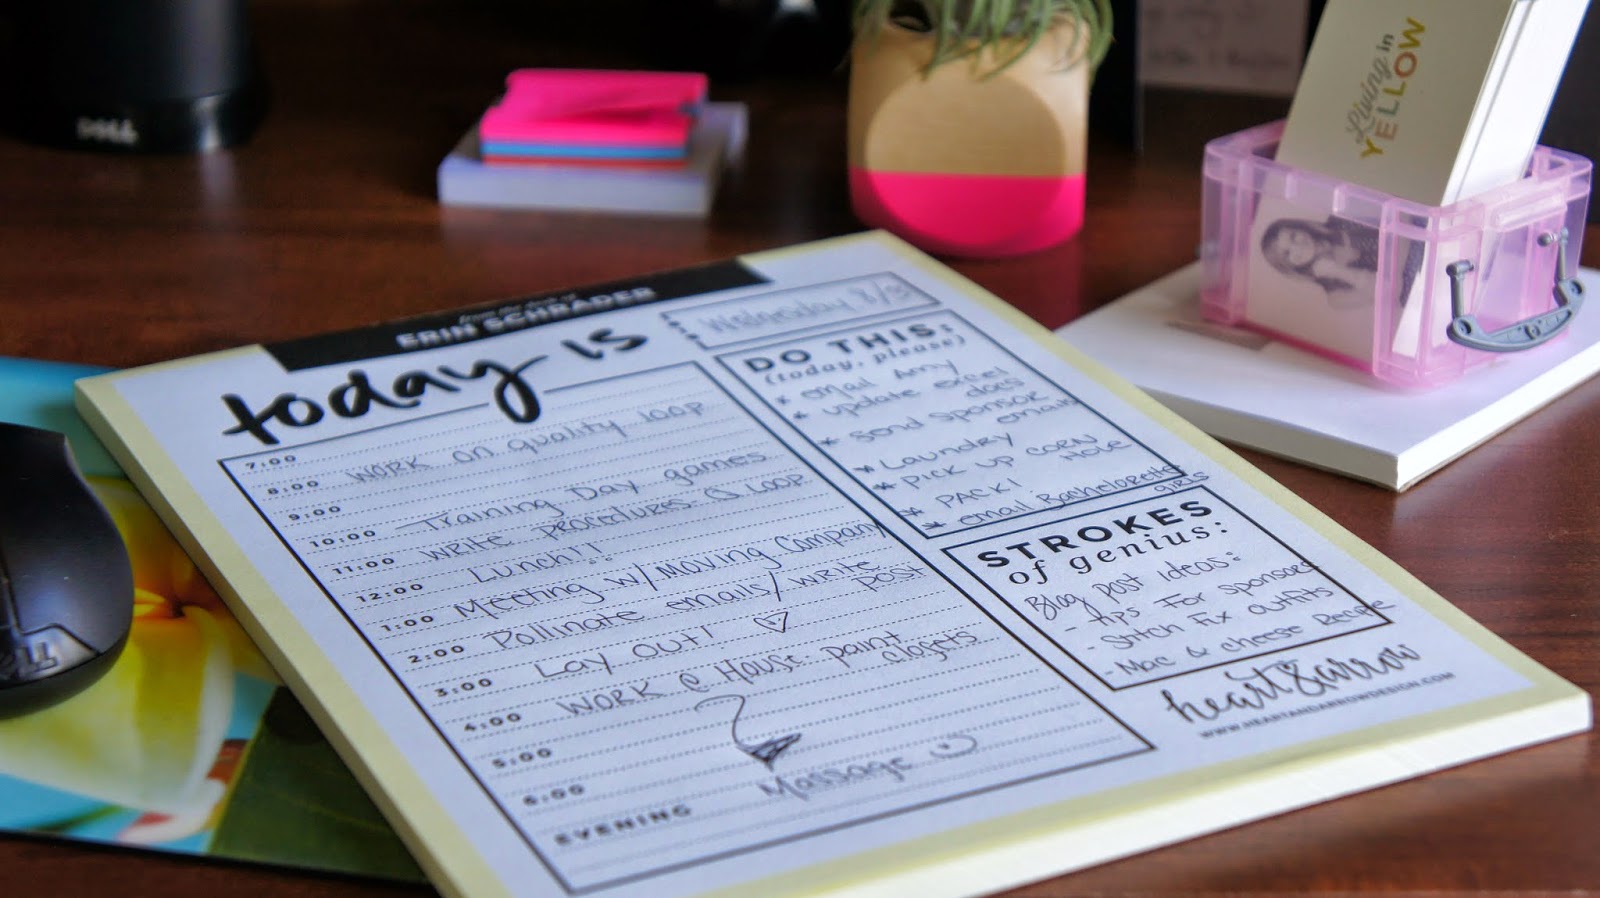 DELL
Living in
YELLOW
from the desk of
ERIN SCHRADER
today is
Wednesday 8/5
7:00
8:00 WORK on quality loop
9:00
10:00 Training Day games
11:00 write procedures @ loop
12:00 Lunch!!
1:00 Meeting w/ Moving Company
2:00 Pollinate emails/write post
3:00 Lay out!
4:00 WORK @ House: paint closets
5:00
6:00
EVENING Massage
DO THIS:
(today, please)
* email Amy
* update excel docs
* send sponsor emails
* Laundry
* Pick up corn hole
* PACK!
* email Bachelorette girls
STROKES
of genius:
Blog post ideas:
- tips for sponsors
- Stitch Fix outfits
- Mac & cheese Recipe
heart&arrow
WWW.HEARTANDARROWDESIGN.COM